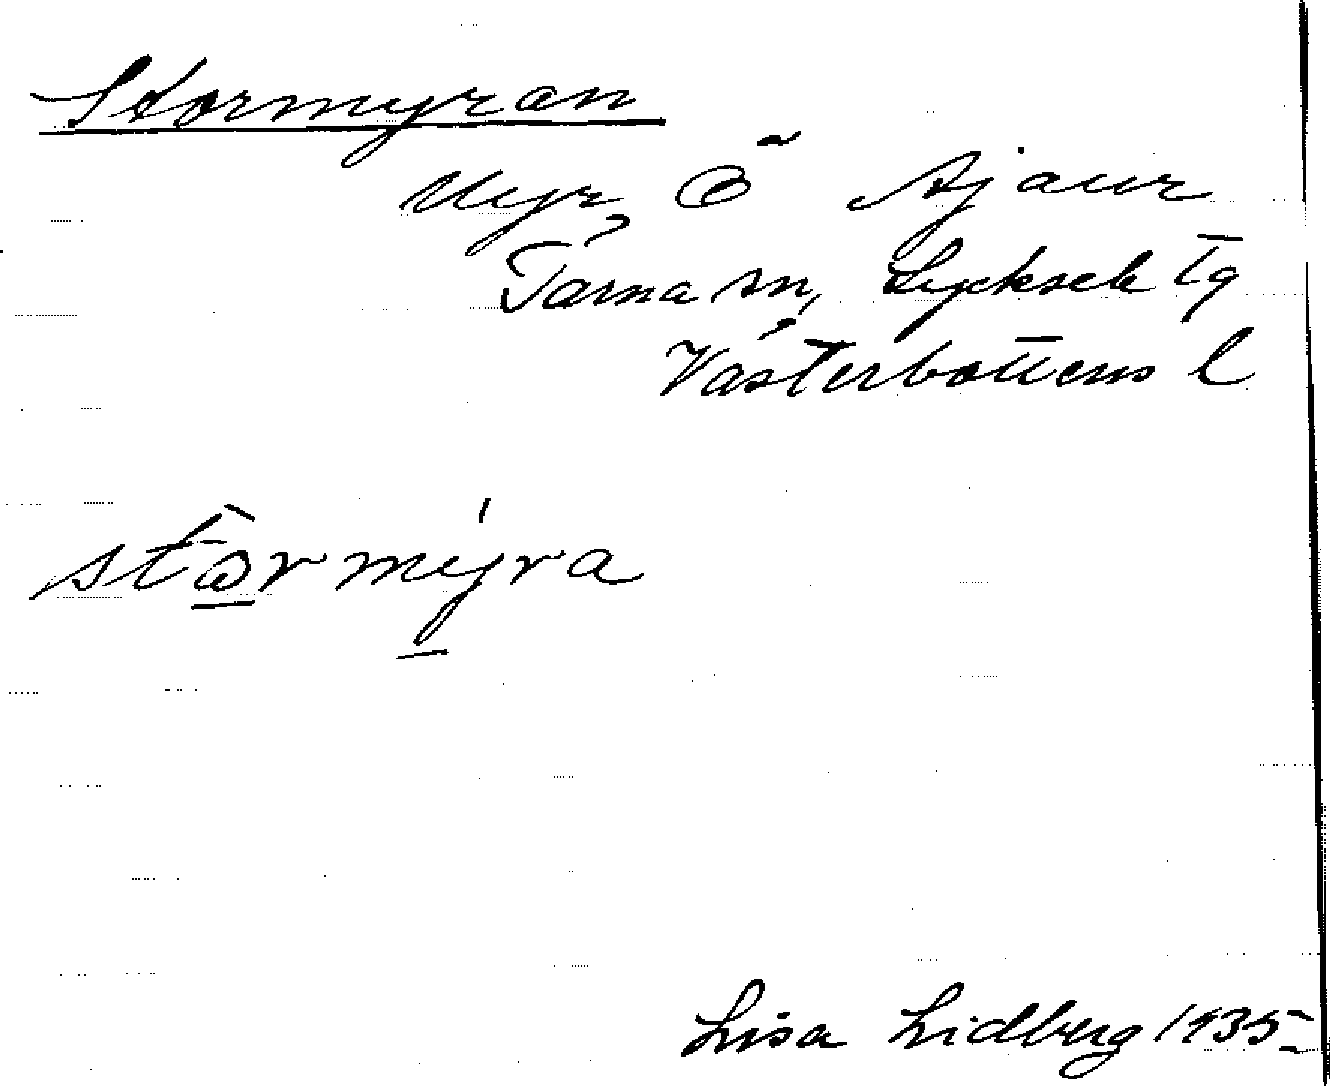 Stormyran
Myr, Ö Ajaur
Tärna sn, Lycksele tg
Västerbottens l
stòrmýra
Lisa Lidberg 1935